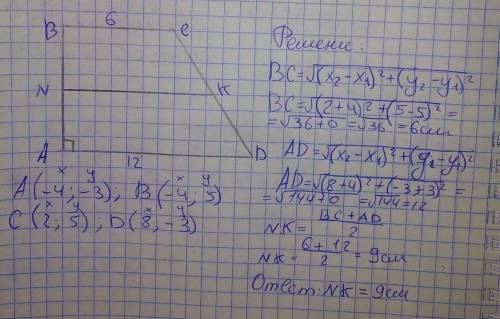 B 6 C
N K
A 12 D
x y x y
A(-4; -3); B(-4; 5)
x y x y
C(2; 5), D(8; -3)
Решение.
BC=√(x₂-x₁)²+(y₂-y₁)²
BC=√(2+4)²+(5-5)²=
=√36+0=√36=6см
AD=√(x₂-x₁)²+(y₂-y₁)²
AD=√(8+4)²+(-3+3)²=
=√144+0=√144=12
NK=(BC+AD)/2
NK=(6+12)/2=9см
Ответ: NK=9см